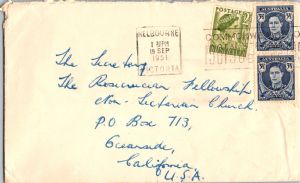 MELBOURNE
1 30 PM
19 SEP
1951
VICTORIA
POSTAGE
AUSTRALIA
COMMONW
JUBILEE
AUSTRALIA
AUSTRALIA
The Secretary
The Rosicrucian Fellowship
Non-Sectarian Church.
P O Box 713,
Oceanside,
California,
U.S.A.